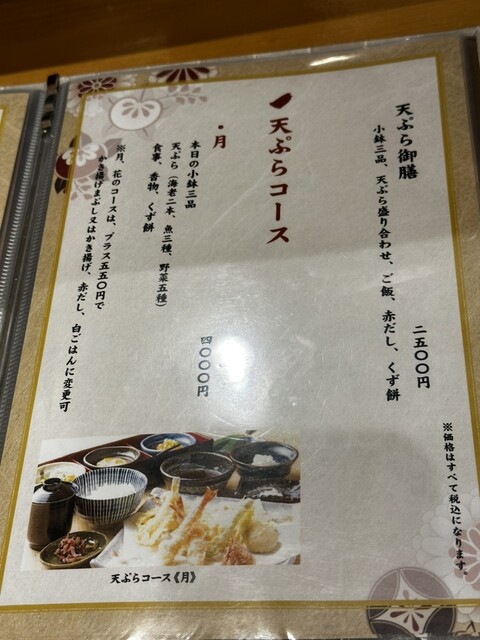 天ぷら御膳
小鉢三品、天ぷら盛り合わせ、ご飯、赤だし、くず餅
二五〇〇円
※価格はすべて税込になります。
天ぷらコース
・月
本日の小鉢三品
天ぷら（海老二本、魚三種、野菜五種）
食事、香物、くず餅
四〇〇〇円
※月、花のコースは、プラス五五〇円で
かき揚げまぶし又はかき揚げ、赤だし、白ごはんに変更可
天ぷらコース《月》